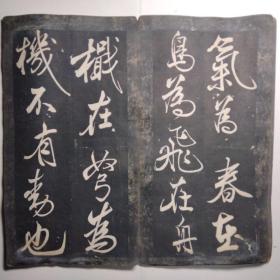 氣為春在
鳥為飛在舟
檝在弩為
機不有動也